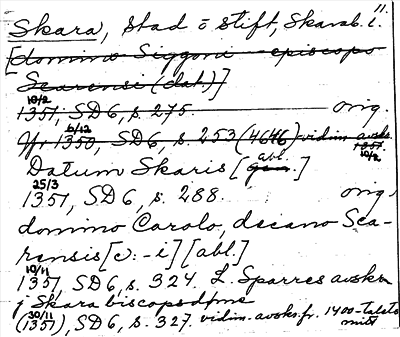 11.
Skara, stad o stift, Skarab. l.
[domino Siggoni episcopo
Scarensi (dat.)]
10/2
1351, SD6, s. 275. orig.
Jfr 6/12 1350, SD6, s. 253 (4646) vidim. avskr. 1351 10/2
Datum Skaris [gen. abl.]
25/3
1351, SD6, s. 288. orig.
domino Carolo, decano Sca-
rensis [ɔ: -i] [abl.]
10/11
1351, SD6, s. 324. L. Sparres avskr.
j Skara biscopsdøme
30/11
(1351), SD6, s. 327. vidim. avskr. fr. 1400-talets mitt